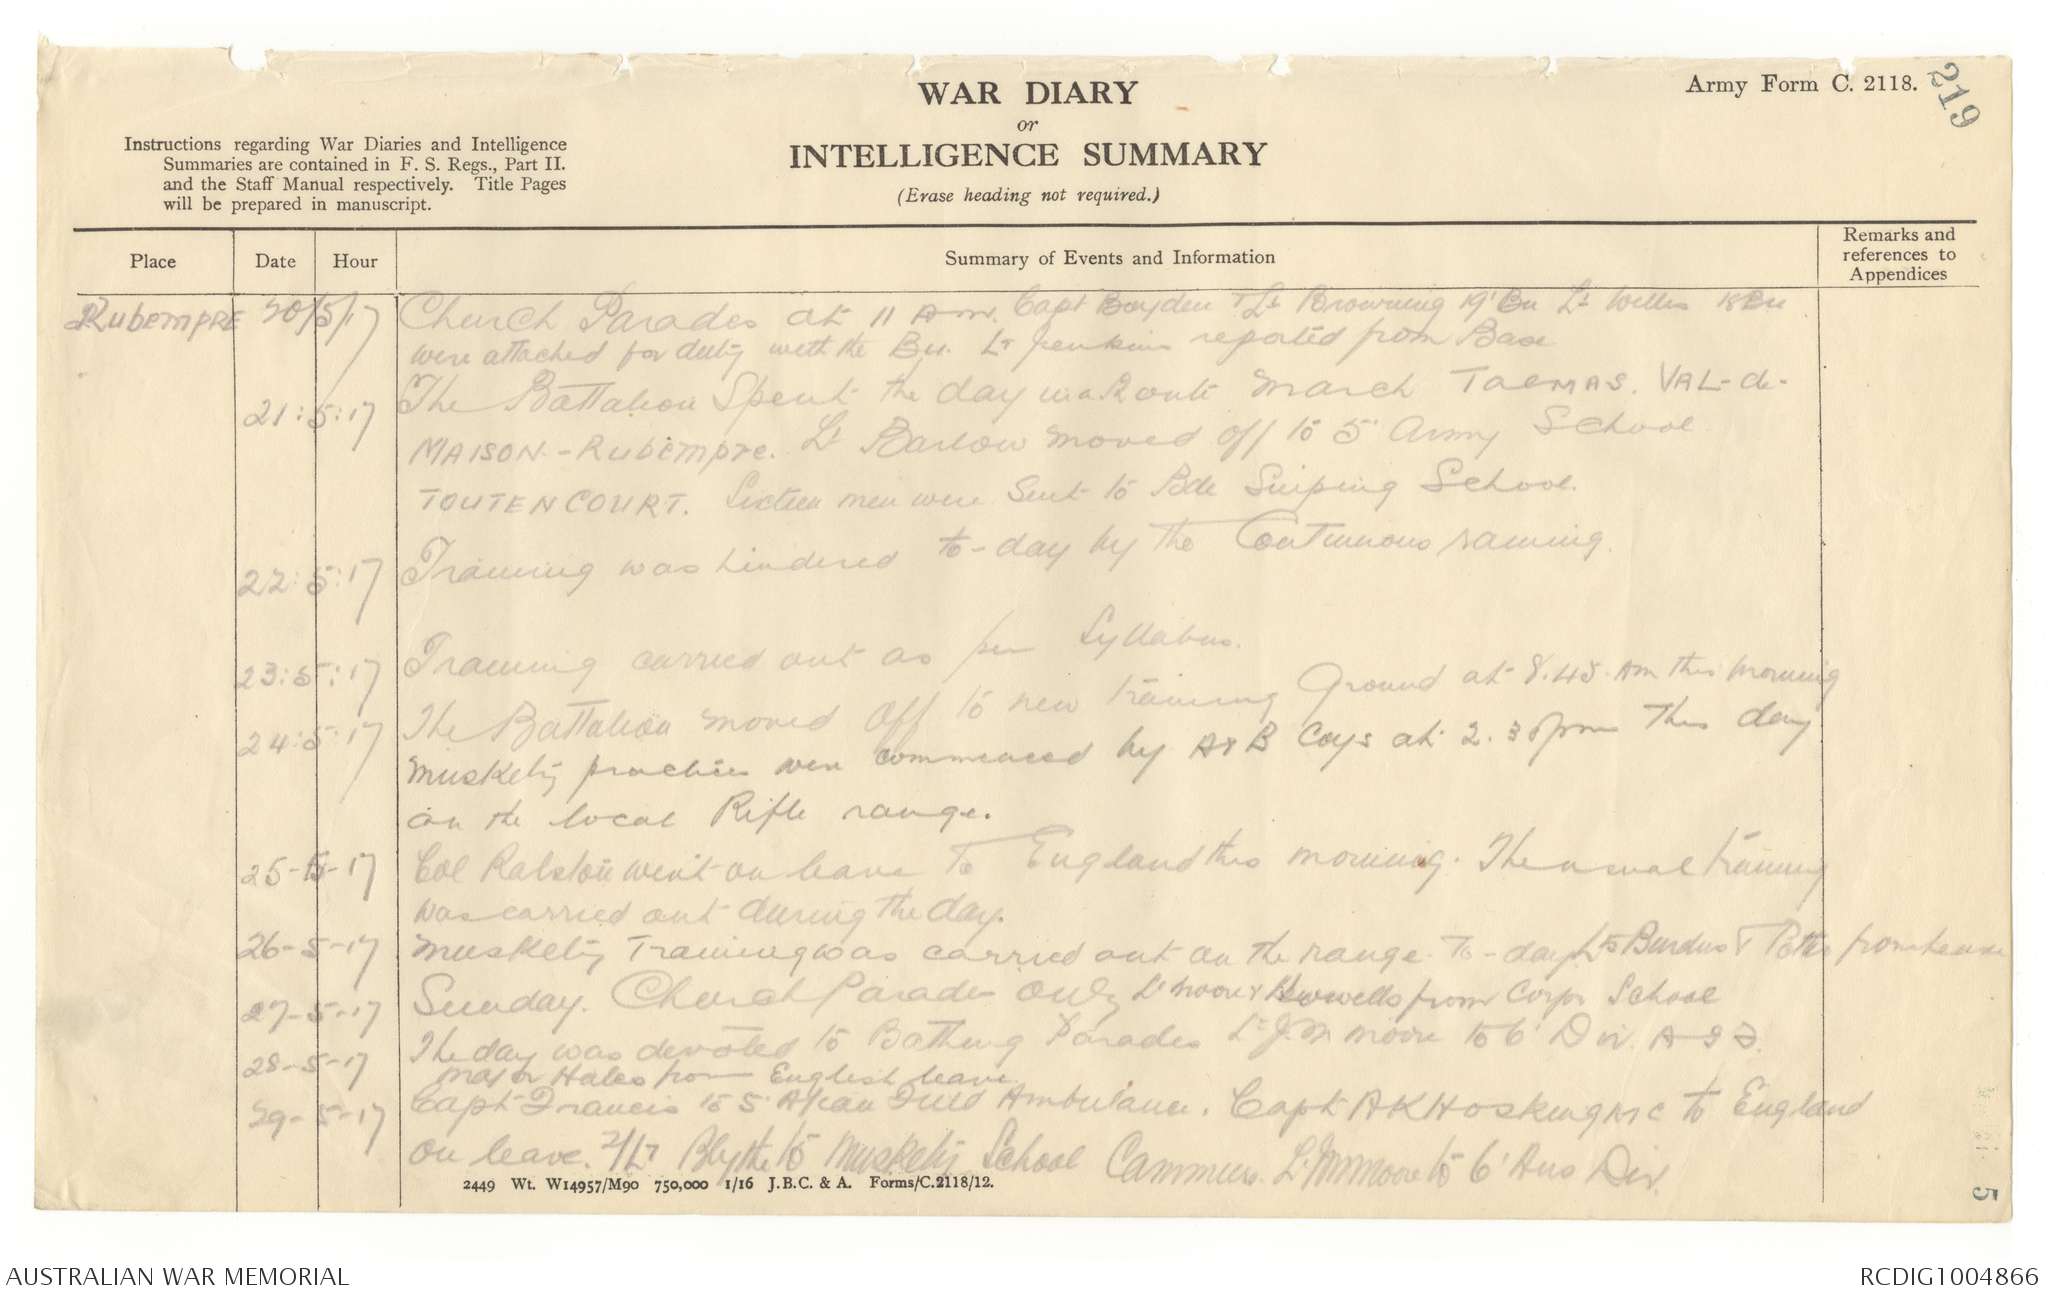 219
Army Form C. 2118.
WAR DIARY
or
INTELLIGENCE SUMMARY
(Erase heading not required.)
Instructions regarding War Diaries and Intelligence
Summaries are contained in F. S. Regs., Part II.
and the Staff Manual respectively. Title Pages
will be prepared in manuscript.
Place
Date
Hour
Summary of Events and Information
Remarks and
references to
Appendices
RUBEMPRE 20/5/17 Church Parades at 11 AM. Capt Boyden & Lt Browning 19' Bn Lt Willis 18 Bn
were attached for duty with the Bn. Lt Jenkins reported from Base
21:5:17 The Battalion Spent the day in a Route march TALMAS. VAL-de-
MAISON-RUBEMPRE. Lt Barlow moved off to 5' Army School
TOUTENCOURT. Sixteen men were Sent to Bde Sniping School.
22:5:17 Training was hindered to-day by the Continuous raining.
23:5:17 Training carried out as per Syllabus.
24:5:17 The Battalion moved off to new training Ground at 8.45 AM this morning
Musketry practices were commenced by A & B Coys at 2.30pm this day
on the local Rifle range.
25-5-17 Col Ralston went on leave to England this morning. The usual training
was carried out during the day.
26-5-17 Musketry Training was carried out on the range to-day Lts Burdus & Potts from leave
27-5-17 Sunday. Church Parades only Lt Moore & from Corps School
28-5-17 The day was devoted to Bathing Parades Lt J.M Moore to 6' Div. A I F.
Major Hales from English leave
29-5-17 Capt Francis to 5' Field Ambulance. Capt A K Hosking MC to England
on leave. 2/Lt Blythe to Musketry School Cammiers. Lt Moore to 6' Aus Div.
2449 Wt. W14957/M90 750,000 1/16 J.B.C. & A. Forms/C.2118/12.
5
AUSTRALIAN WAR MEMORIAL
RCDIG1004866